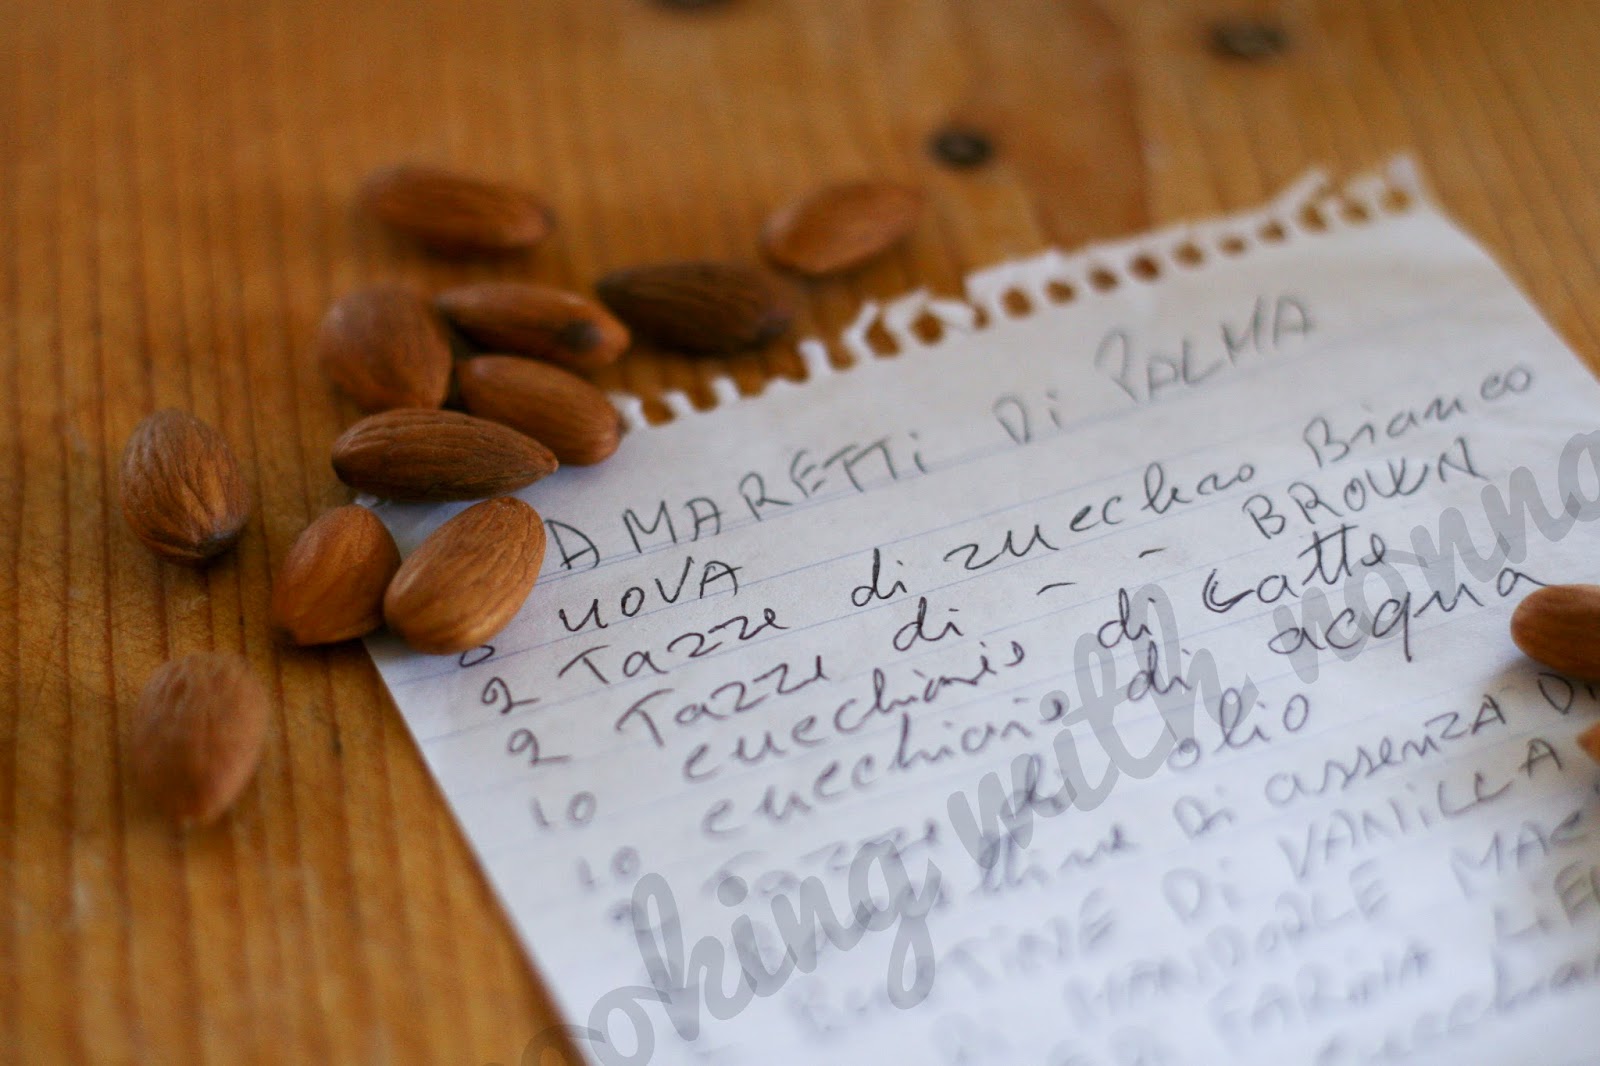 AMARETTi Di PALMA
UOVA
2 Tazze di zucchero Bianco
2 Tazze di - - BROWN
10 cucchiaio di Latte
10 cucchiaio di acqua
Tazze di olio
Di assenza Di
BUSTINE Di VANiLLA
Di MANDORLE MAC
FARINA LIE
cooking with nonna